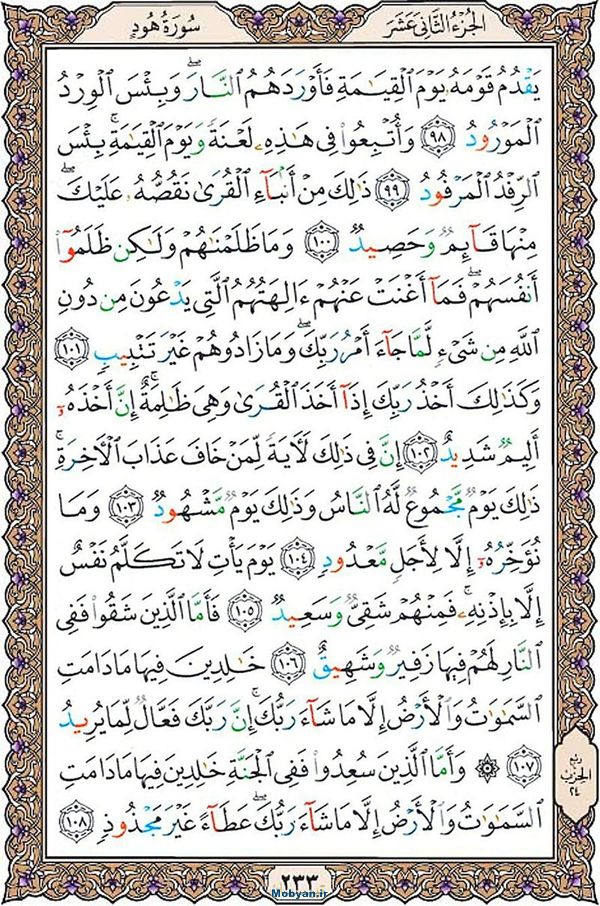 الجُزْءُ الثَّانِي عَشَرَ
سُورَةُ هُودٍ
يَقْدُمُ قَوْمَهُۥ يَوْمَ ٱلْقِيَٰمَةِ فَأَوْرَدَهُمُ ٱلنَّارَ ۖ وَبِئْسَ ٱلْوِرْدُ
ٱلْمَوْرُودُ ﴿٩٨﴾ وَأُتْبِعُوا۟ فِى هَٰذِهِۦ لَعْنَةً وَيَوْمَ ٱلْقِيَٰمَةِ ۚ بِئْسَ
ٱلرِّفْدُ ٱلْمَرْفُودُ ﴿٩٩﴾ ذَٰلِكَ مِنْ أَنۢبَآءِ ٱلْقُرَىٰ نَقُصُّهُۥ عَلَيْكَ ۖ
مِنْهَا قَآئِمٌ وَحَصِيدٌ ﴿١٠٠﴾ وَمَا ظَلَمْنَٰهُمْ وَلَٰكِن ظَلَمُوٓا۟
أَنفُسَهُمْ ۖ فَمَآ أَغْنَتْ عَنْهُمْ ءَالِهَتُهُمُ ٱلَّتِى يَدْعُونَ مِن دُونِ
ٱللَّهِ مِن شَىْءٍ لَّمَّا جَآءَ أَمْرُ رَبِّكَ ۖ وَمَا زَادُوهُمْ غَيْرَ تَتْبِيبٍ ﴿١٠١﴾
وَكَذَٰلِكَ أَخْذُ رَبِّكَ إِذَآ أَخَذَ ٱلْقُرَىٰ وَهِىَ ظَٰلِمَةٌ ۚ إِنَّ أَخْذَهُۥٓ
أَلِيمٌ شَدِيدٌ ﴿١٠٢﴾ إِنَّ فِى ذَٰلِكَ لَءَايَةً لِّمَنْ خَافَ عَذَابَ ٱلْءَاخِرَةِ ۚ
ذَٰلِكَ يَوْمٌ مَّجْمُوعٌ لَّهُ ٱلنَّاسُ وَذَٰلِكَ يَوْمٌ مَّشْهُودٌ ﴿١٠٣﴾ وَمَا
نُؤَخِّرُهُۥٓ إِلَّا لِأَجَلٍ مَّعْدُودٍ ﴿١٠٤﴾ يَوْمَ يَأْتِ لَا تَكَلَّمُ نَفْسٌ
إِلَّا بِإِذْنِهِۦ ۚ فَمِنْهُمْ شَقِىٌّ وَسَعِيدٌ ﴿١٠٥﴾ فَأَمَّا ٱلَّذِينَ شَقُوا۟ فَفِى
ٱلنَّارِ لَهُمْ فِيهَا زَفِيرٌ وَشَهِيقٌ ﴿١٠٦﴾ خَٰلِدِينَ فِيهَا مَا دَامَتِ
ٱلسَّمَٰوَٰتُ وَٱلْأَرْضُ إِلَّا مَا شَآءَ رَبُّكَ ۚ إِنَّ رَبَّكَ فَعَّالٌ لِّمَا يُرِيدُ
﴿١٠٧﴾ ۞ وَأَمَّا ٱلَّذِينَ سُعِدُوا۟ فَفِى ٱلْجَنَّةِ خَٰلِدِينَ فِيهَا مَا دَامَتِ
ٱلسَّمَٰوَٰتُ وَٱلْأَرْضُ إِلَّا مَا شَآءَ رَبُّكَ ۖ عَطَآءً غَيْرَ مَجْذُوذٍ ﴿١٠٨﴾
ربع
الحزب
٢٤
٢٣٣
Mobyan.ir